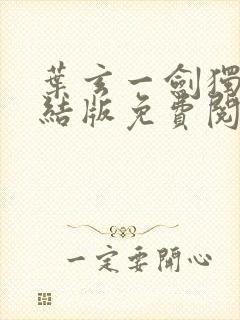 葉玄一劍獨
結版免費閱
一定要開心